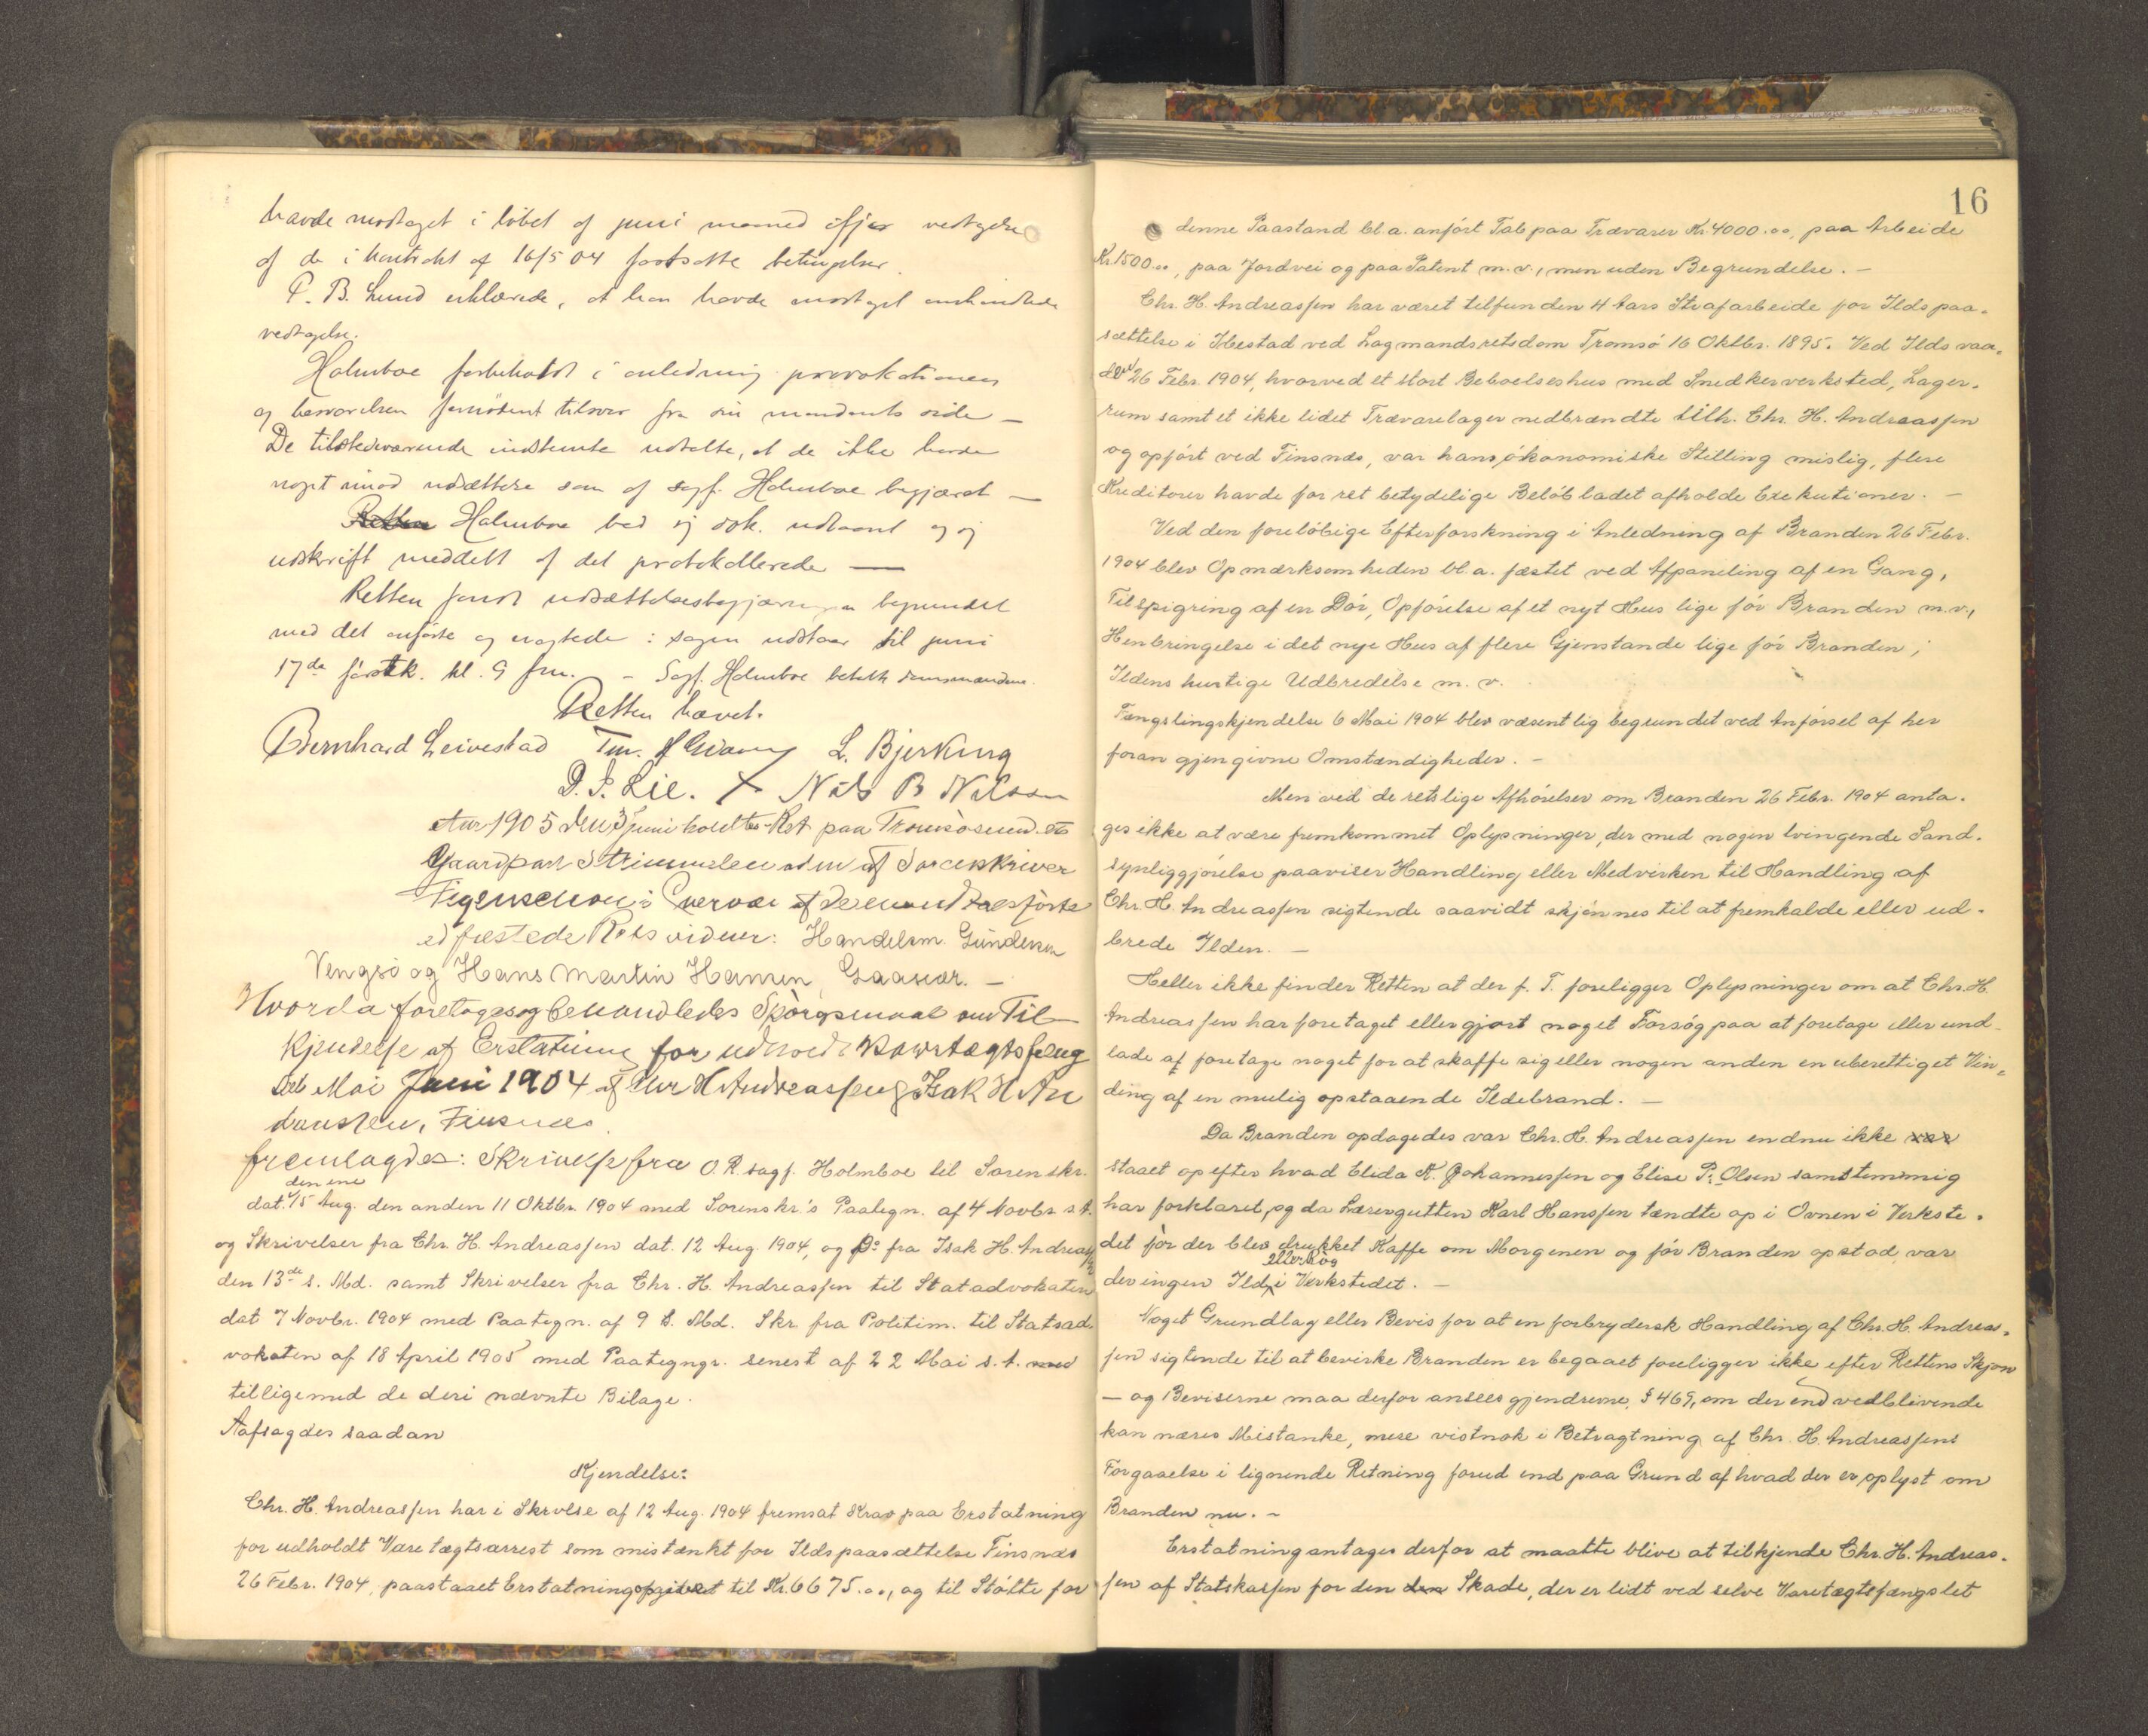 havde modtaget i løbet af juni maaned ifjor vedtagelse
af de i kontrakt af 16/5 04 fastsatte betingelser.
P. B. Lund erklærede, at han havde modtaget omhandlede
vedtagelse.
Holmboe forbeholdt i anledning provokationen
og besvarelsen fornødent tilsvar fra sin mandants side —
De tilstedeværende indstemte udtalte, at de ikke havde
noget imod udsættelse som af sagf. Holmboe begjæret —
Holmboe bad sig dok. udlaant og sig
udskrift meddelt af det protokollerede —
Retten fandt udsættelsesbegjæringen begrundet
med det anførte og eragtede: sagen udstaar til juni
17de førstk. kl. 9 fm. - Sagf. Holmboe betalte domsmændene.
Retten hævet.
Bernhard Leivestad L. Bjerkeng
P. S. Lie. Nils B Nilssen
Aar 1905 den 3 juni holdtes Ret paa Tromsøsund
Gaardpart Strimmelen adm af Sorenskriver
Eigenschou i Overvær af
edfæstede Retsvidner: Handelsm. Gundersen
Vengsø og Hans Martin Hansen, Gaasvær. —
Hvorda foretoges og behandledes Spørgsmaal om Til-
kjendelse af Erstatning for udholdt Varetægtsfængsel
Mai Juni 1904 af Chr H Andreassen og Isak H An
dreassen, Finsnes.
fremlagdes: Skrivelse fra O.R.sagf. Holmboe til Sorenskr.
den ene
dat. 1/5 Aug. den anden 11 Oktbr. 1904 med Sorenskr.'s Paategn. af 4 Novbr s.A.
og Skrivelser fra Chr. H. Andreassen dat. 12 Aug. 1904, og Do fra Isak H. Andreassen
den 13de s. Md. samt Skrivelser fra Chr. H. Andreassen til Statadvokaten
dat 7 Novbr. 1904 med Paategn. af 9 s. Md. Skr. fra Politim. til Statsad-
vokaten af 18 April 1905 med Paategngr. senest af 22 Mai s. A. med
tilligemed de deri nævnte Bilage.
Aafsagdes saadan
Kjendelse:
Chr. H. Andreassen har i Skrvlse af 12 Aug. 1904 fremsat Krav paa Erstatning
for udholdt Varetægtsarrest som mistænkt for Ildspaasættelse Finsnes
26 Febr. 1904, paastaaet Erstatning opgivet til Kr. 6675.00, og til Støtte for
16
denne Paastand bl. a. anført Tab paa Trævarer Kr 4000.00, paa Arbeide
Kr. 1500.00, paa Jordvei og paa Patent m. v., men uden Begrundelse. —
Chr. H. Andreassen har været tilfunden 4 Aars Strafarbeide for Ildspaa-
sættelse i Ibestad ved Lagmandsretsdom Tromsø 16 Oktbr. 1895. Ved Ildsvaa-
den 26 Febr. 1904, hvorved et stort Beboelseshus med Snedkerverksted, Lager-
rum samt et ikke lidet Trævarelager nedbrændte tilh. Chr. H. Andreassen
og opført ved Finsnes, var hans økonomiske Stilling mislig, flere
Kreditorer havde for ret betydelige Beløb ladet afholde Exekutioner. —
Ved den foreløbige Efterforskning i Anledning af Branden 26 Febr.
1904 blev Opmærksomheden bl. a. fæstet ved Afpaneling af en Gang,
Tilspigring af en Dør, Opførelse af et nyt Hus lige før Branden m. v.,
Henbringelse i det nye Hus af flere Gjenstande lige før Branden,
Ildens hurtige Udbredelse m. v.
Fængslingskjendelse 6 Mai 1904 blev væsentlig begrundet ved Anførsel af her
foran gjengivne Omstændigheder. -
Men ved de retslige Afhørelser om Branden 26 Febr. 1904 anta-
ges ikke at være fremkommet Oplysninger, der med nogen tvingende Sand-
synliggjørelse paaviser Handling eller Medvirken til Handling af
Chr. H. Andreassen sigtende saavidt skjønnes til at fremkalde eller ud-
brede Ilden. —
Heller ikke finder Retten at der f. T. foreligger Oplysninger om at Chr. H.
Andreassen har foretaget eller gjort noget Forsøg paa at foretage eller und-
lade af foretage noget for at skaffe sig eller nogen anden en uberettiget Vin-
ding af en mulig opstaaende Ildebrand. —
Da Branden opdagedes var Chr. H. Andreassen endnu ikke
staaet op efter hvad Elida K. Johannessen og Elise P. Olsen samstemmig
har forklaret, og da Læregutten Karl Hanssen tændte op i Ovnen i Verkste-
det før der blev drukket Kaffe om Morgenen og før Branden opstod, var
eller Røg
der ingen Ild i Verkstedet. —
Noget Grundlag eller Bevis for at en forbrydersk Handling af Chr. H. Andreas-
sen sigtende til at bevirke Branden er begaaet foreligger ikke efter Rettens Skjøn
— og Beviserne maa derfor ansees gjendrevne, § 469, om der end vedblivende
kan næres Mistanke, mere vistnok i Betragtning af Chr. H. Andreassens
Forgaaelse i lignende Retning forud end paa Grund af hvad der er oplyst om
Branden nu. -
Erstatning antages derfor at maatte blive at tilkjende Chr. H. Andreas-
sen af Statskassen for den den Skade, der er lidt ved selve Varetægtsfængslet